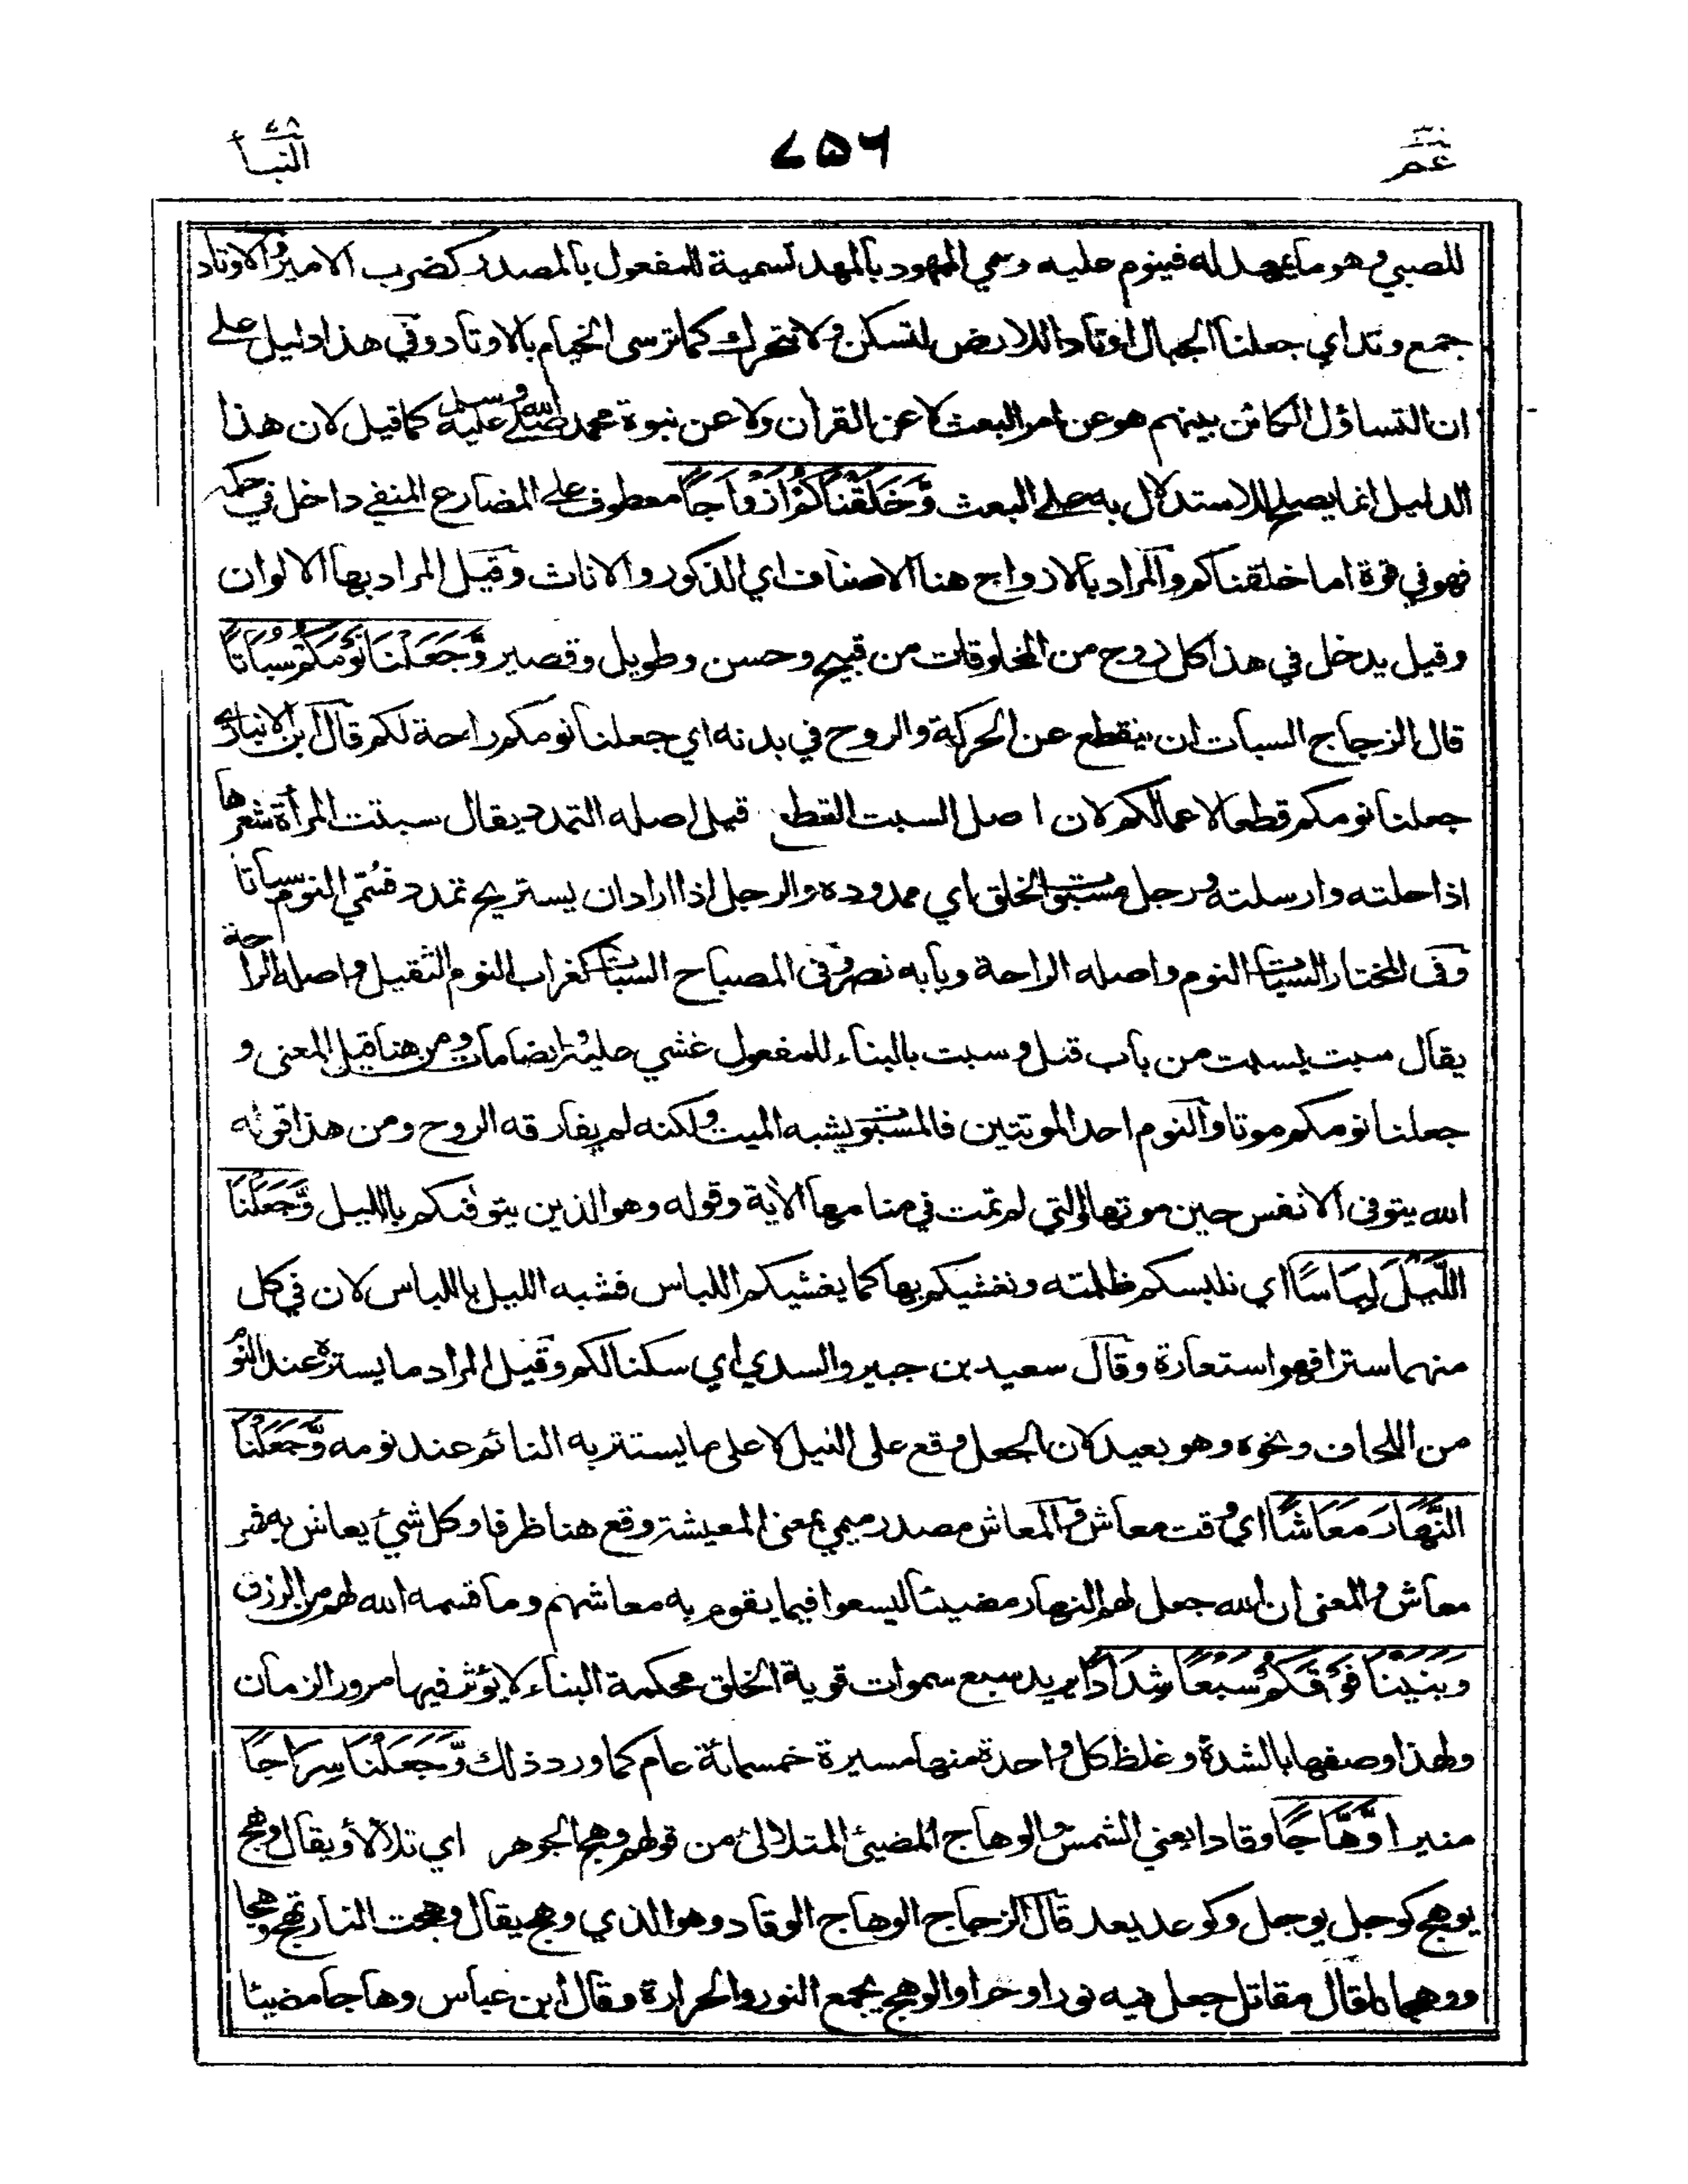 عم ٧٥٦ النبأ ٧٨
للصبي وهو ما يمهد له فينوم عليه وسمي الممهود بالمهد تسمية للمفعول بالمصدر كضرب الامير والاوتاد
جمع وتد اي جعلنا الجبال اوتادا للارض لتسكن ولا تتحرك كما ترسى الخيام بالاوتاد وفي هذا دليل على
ان التساؤل الكائن بينهم هو عن امر البعث لا عن القرأن ولا عن نبوة محمد صلى الله عليه وسلم كما قيل لان هذا
الدليل انما يصلح للاستدلال به على البعث وَّخَلَقْنَاكُمْ اَزْوَاجًا معطوف على المضارع المنفي داخل في حكمه
فهو في قوة اما خلقناكم والمراد بالازواج هنا الاصناف اي الذكور والاناث وقيل المراد بها الالوان
وقيل يدخل في هذا كل زوج من المخلوقات من قبيح وحسن وطويل وقصير وَّجَعَلْنَا نَوْمَكُمْ سُبَاتًا
قال الزجاج السبات ان ينقطع عن الحركة والروح في بدنه اي جعلنا نومكم راحة لكم قال ابن الانباري
جعلنا نومكم قطعا لاعمالكم لان اصل السبت القطع قيل اصله التمدد يقال سبتت المرأة شعرها
اذا حلته وارسلته ورجل مسبوت الخلق اي ممدوده والرجل اذا اراد ان يستريح تمدد فسُمّي النوم سباتا
وفى المختار السبات النوم واصله الراحة وبابه نصر وفى المصباح السبات كغراب النوم الثقيل واصله الراحة
يقال سبت يسبت من باب قتل وسبت بالبناء للمفعول غشي عليه وايضا مات ومن هنا قيل المعنى و
جعلنا نومكم موتا والنوم احد الموتتين فالمسبوت يشبه الميت ولكنه لم يفارقه الروح ومن هذا قوله
الله يتوفى الانفس حين موتها والتي لم تمت في منامها الاٰية وقوله وهو الذين يتوفٰىكم بالليل وَّجَعَلْنَا
اللَّيْلَ لِبَاسًا اي نلبسكم ظلمته ونغشيكم بها كما يغشيكم اللباس فشبه الليل باللباس لان في كل
منهما سترا فهو استعارة وقال سعيد بن جبير والسدي اي سكنا لكم وقيل المراد ما يستره عند النوم
من اللحاف ونحوه وهو بعيد لان الجعل وقع على الليل لا على ما يستتر به النائم عند نومه وَّجَعَلْنَا
النَّهَارَ مَعَاشًا اي وقت معاش والمعاش مصدر ميمي بمعنى المعيشة وقع هنا ظرفا وكل شيء يعاش به فهو
معاش والمعنى ان الله جعل لهم النهار مضيئا ليسعوا فيما يقوم به معاشهم وما قسمه الله لهم من الرزق
وَبَنَيْنَا فَوْقَكُمْ سَبْعًا شِدَادًا يريد سبع سموات قوية الخلق محكمة البناء لا يؤثر فيها مرور الزمان
ولهذا وصفها بالشدة وغلظ كل واحدة منها مسيرة خمسمائة عام كما ورد ذلك وَّجَعَلْنَا سِرَاجًا
منيرا وَّهَّاجًا وقادا يعني الشمس والوهاج المضيئ المتلالئ من قولهم وهج الجوهر اي تلألأ ويقال وهج
يوهج كوجل يوجل وكوعد يعد قال الزجاج الوهاج الوقاد وهو الذي وهج يقال وهجت النار تهج وهجا
ووهجانا قال مقاتل جعل فيه نورا وحرا والوهج يجمع النور والحرارة وقال ابن عباس وهاجا مضيئا